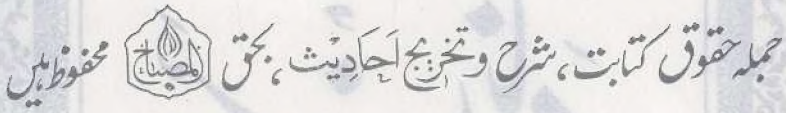 جملہ حقوق کتابت، شرح و تخریج اَحَادِیْث، بحق المصباح محفوظ ہیں